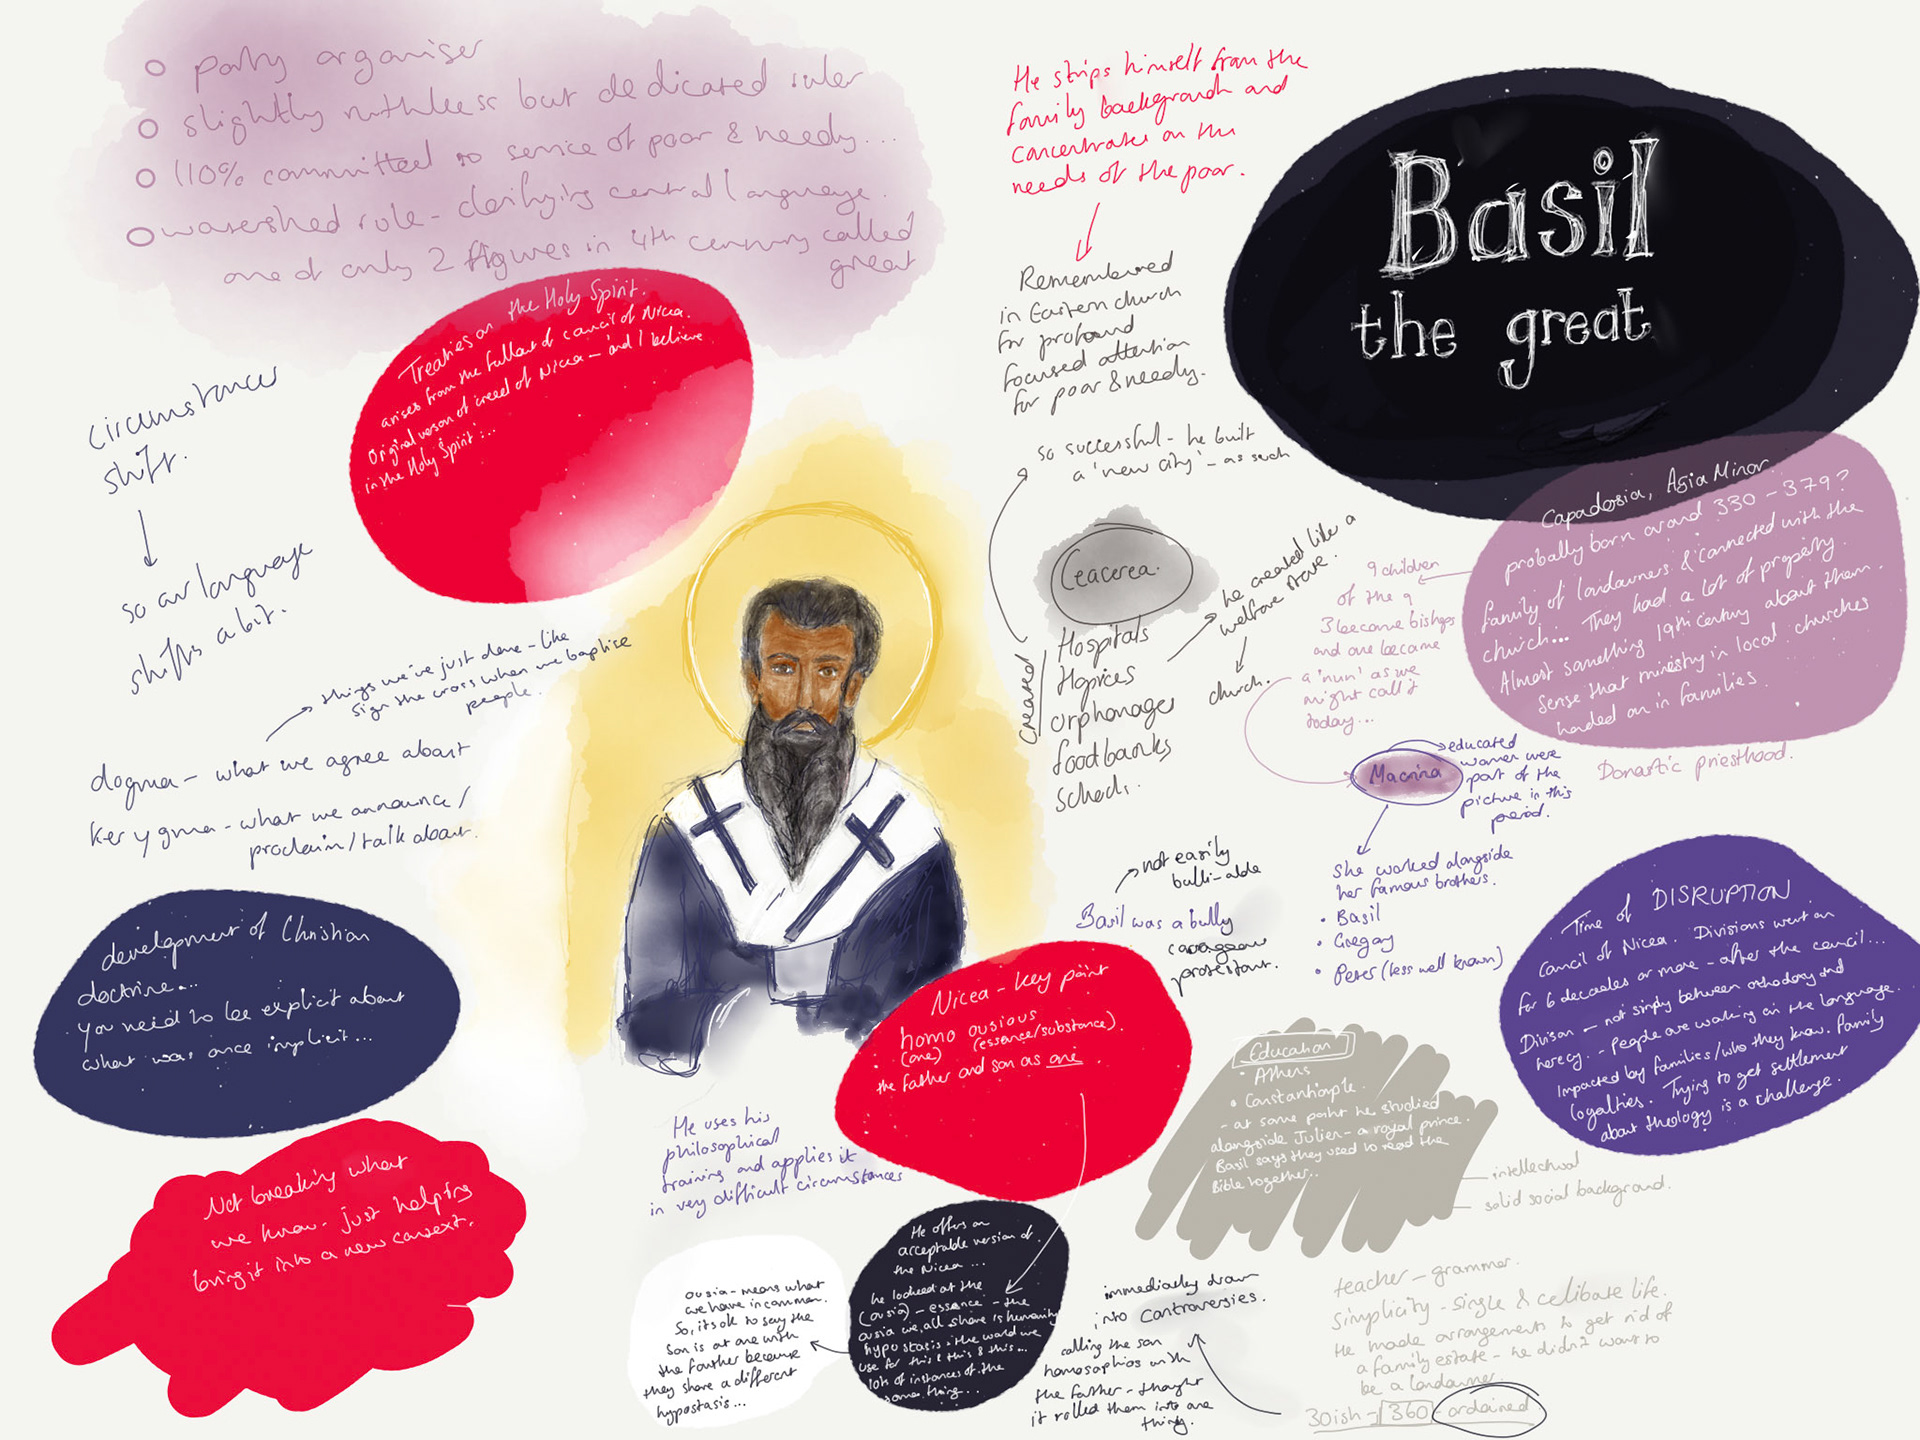 party organiser
slightly ruthless but dedicated ruler
110% committed to service of poor & needy...
watershed role - clarifying central language.
one of only 2 figures in 4th century called
great
He strips himself from the
family background and
concentrates on the
needs of the poor.
Remembered
in Eastern church
for profound
focused attention
for poor & needy.
so successful - he built
a 'new city' - as such
Basil
the great
Treaties on the Holy Spirit.
arises from the fallout of council of Nicea.
Original version of creed of Nicea - 'and I believe
in the Holy Spirit'...
circumstances
shift.
so our language
shifts a bit.
things we've just done - like
sign the cross when we baptise
people.
dogma - what we agree about
kerygma - what we announce/
proclaim/talk about.
development of Christian
doctrine...
you need to be explicit about
what was once implicit...
Not breaking what
we know - just helping
bring it into a new context.
Ceacerea.
created
Hospitals
Hopices
orphanages
foodbanks
schools.
he created like a
welfare state.
church.
Capadosia, Asia Minor.
probally born around 330 - 379?
family of landowners & connected with the
church... They had a lot of property.
Almost something 19th century about them.
Sense that ministry in local churches
handed on in families.
Domastic priesthood.
9 children
of the 9
3 become bishops
and one became
a 'nun' as we
might call it
today...
Macrina
educated
women were
part of the
picture in this
period.
She worked alongside
her famous brothers.
• Basil
• Gregory
• Peter (less well known)
not easily
bulli-able
Basil was a bully
protestant.
Time of DISRUPTION
Council of Nicea. Divisions went on
for 6 decades or more - after the council...
Divison - not simply between orthodoxy and
heresy. - People are working on the language.
Impacted by families/who they know. Family
loyalties. Trying to get settlement
about theology is a challenge.
Nicea - key point
homo ousious
(one) (essence/substance).
the father and son as one
He uses his
philosophical
training and applies it
in very difficult circumstances
Education
• Athens
• Constantinople.
- at some point he studied
alongside Julien - a royal prince.
Basil says they used to read the
Bible together..
intellectual
solid social background.
teacher - grammer.
simplicity - single & celibate life.
He made arrangement to get rid of
a family estate - he didn't want to
be a landowner.
30ish - 360 - ordained
immediatley drawn
into controversies.
calling the son
homosophios with
the father - thought
it rolled them into one
thing.
He offers an
acceptable version of.
the Nicea ...
he looked at the
(ousia) - essence - the
ousia we all share is humanity
hypostasis is the word we
use for this & this & this...
lots of instances of the
same thing...
ousia - means what
we have in common.
So, its ok to say the
son is at one with
the father because
they share a different
hypostasis...